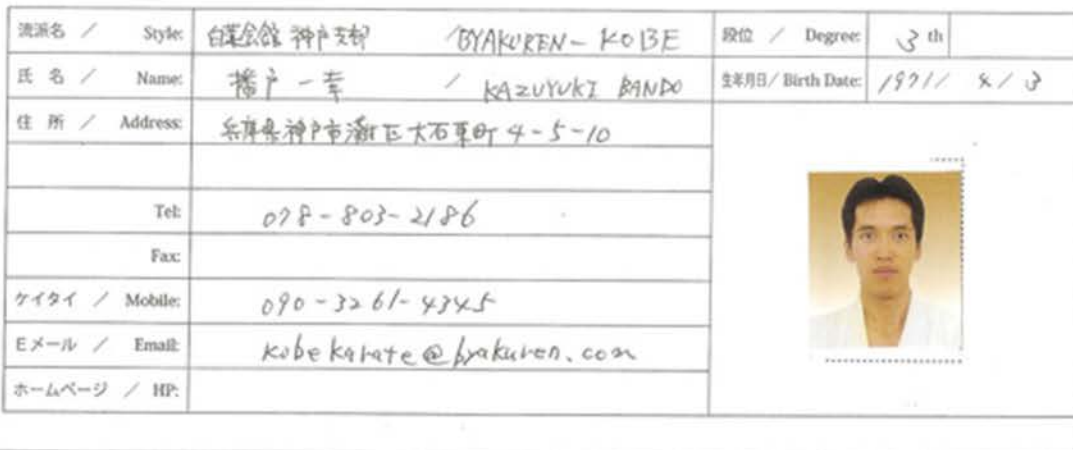 流派名 / Style: 白蓮会館 神戸支部 / BYAKUREN-KOBE 段位 / Degree: 3 th
氏名 / Name: 播戸一幸 / KAZUYUKI BANDO 生年月日/Birth Date: 1971/ 4/3
住所 / Address: 兵庫県神戸市灘区大石東町4-5-10
Tel: 078-803-2186
Fax:
ケイタイ / Mobile: 090-3261-4345
Eメール / Email: kobekarate@byakuren.com
ホームページ / HP: